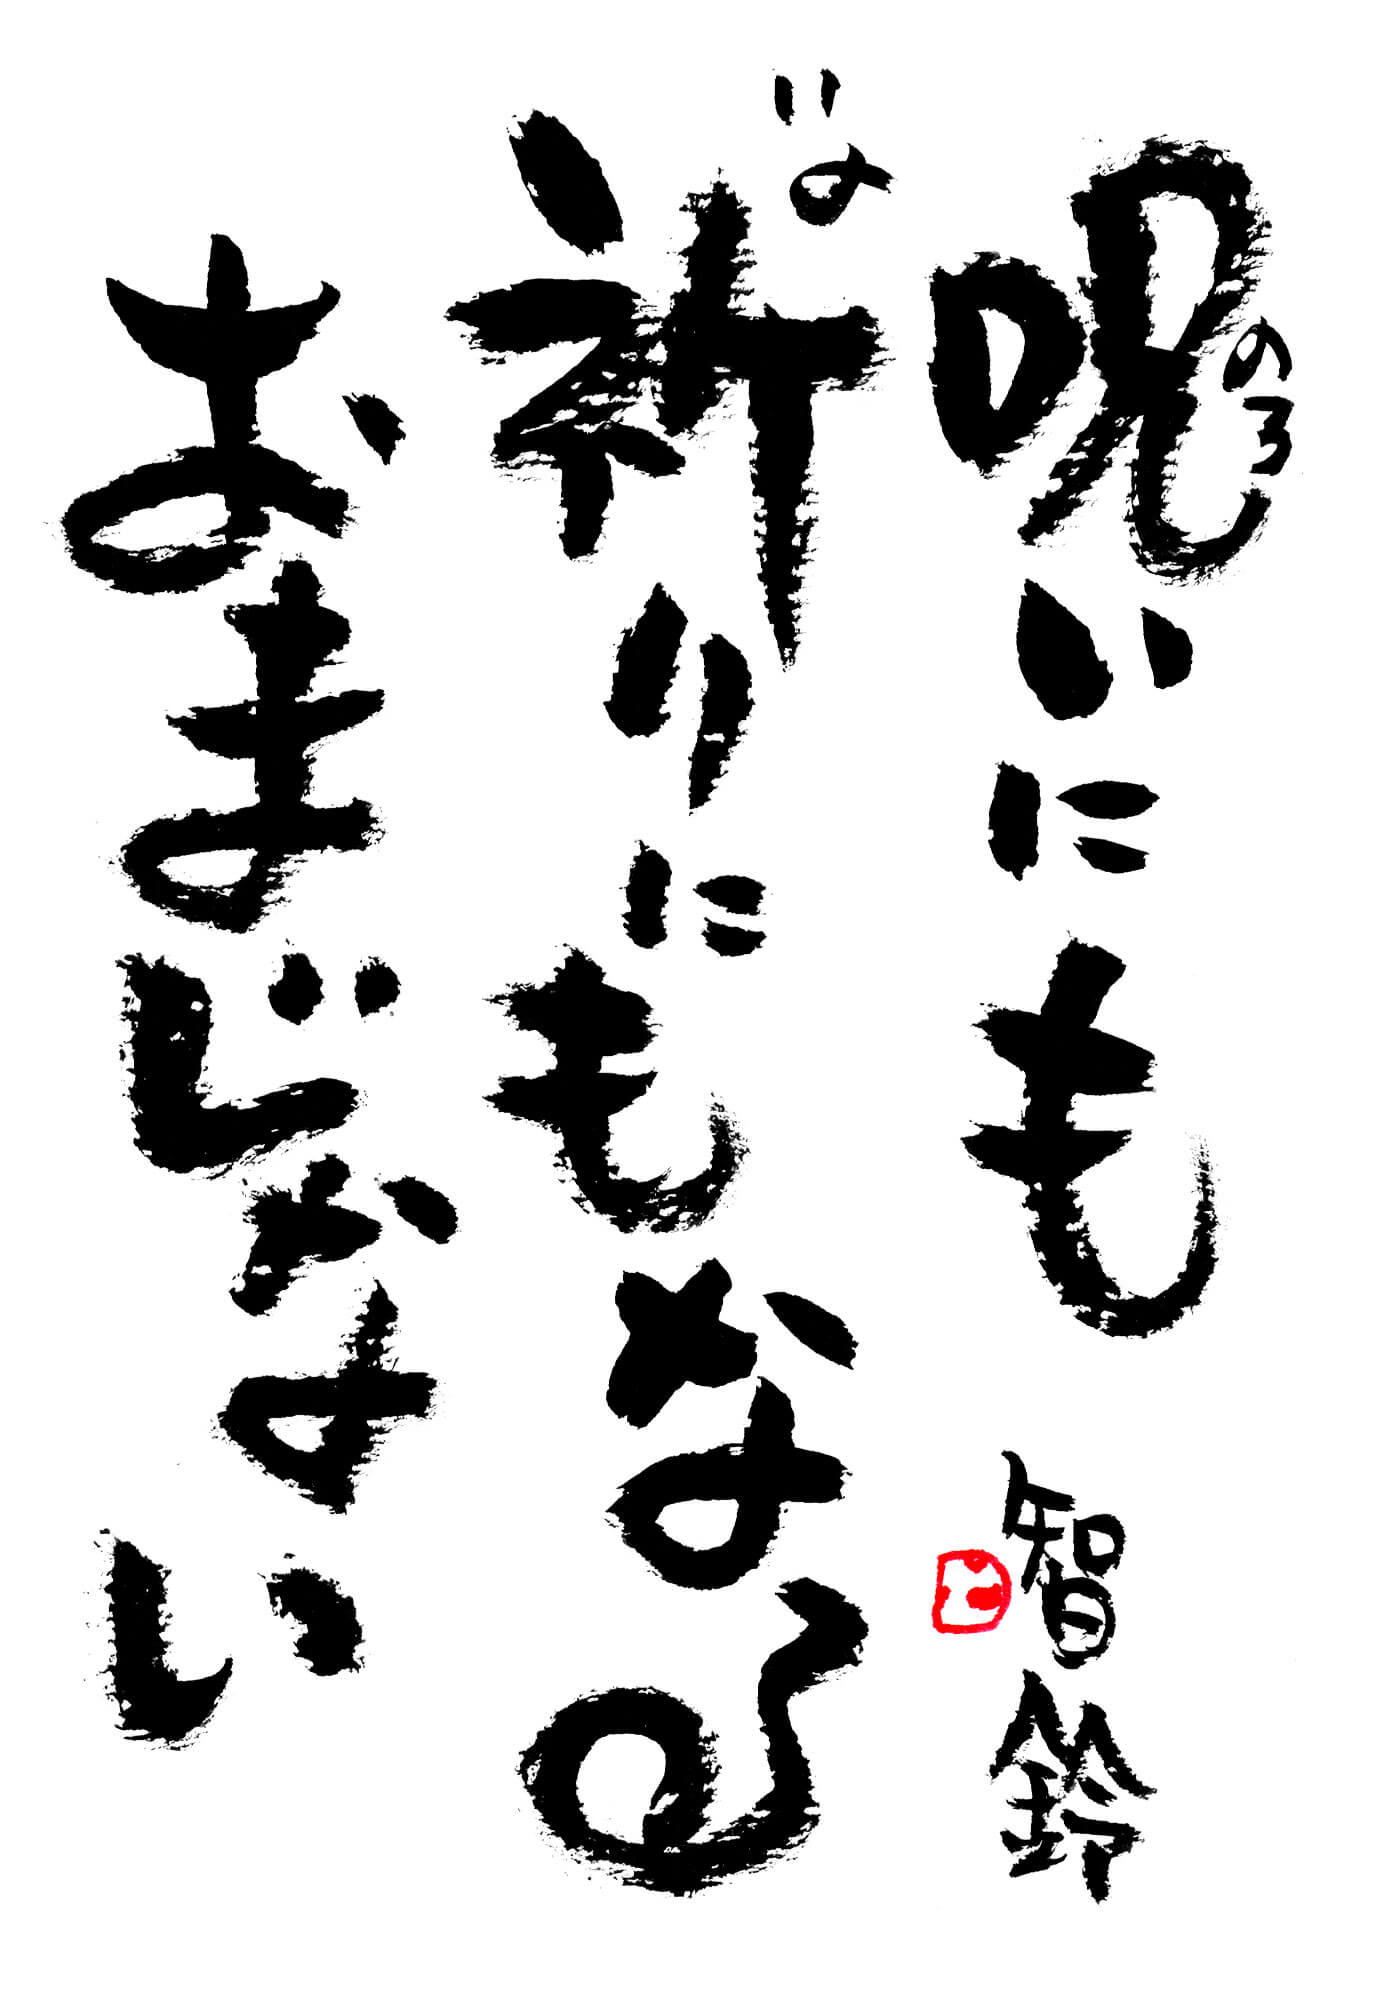 呪いにも
のろ
祈りにもなる
いの
おまじない
智鈴